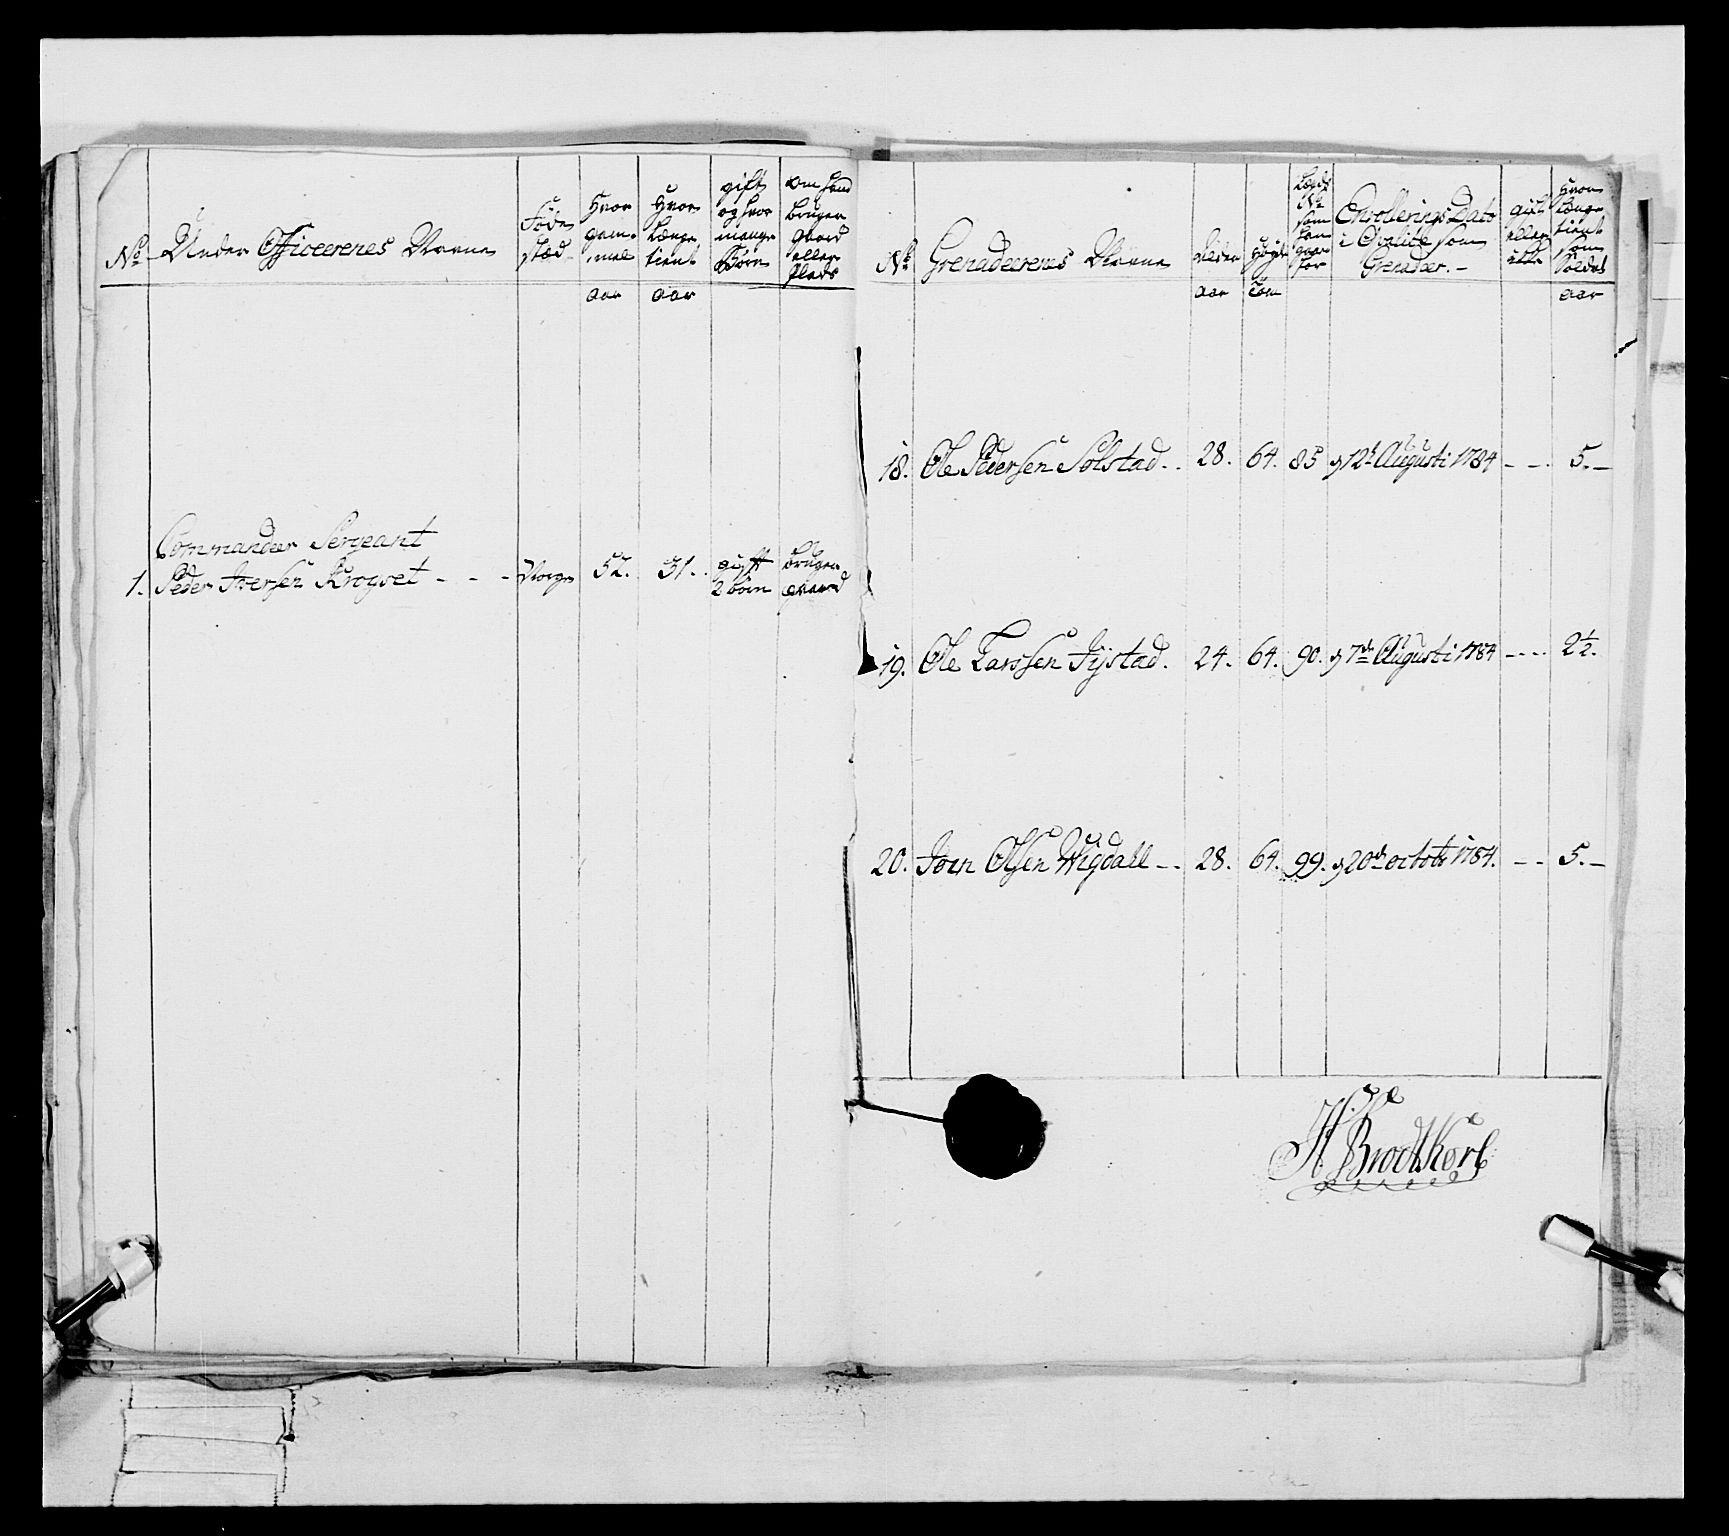 No Under Officerernes Navne
Føde stæd
Hvor gam- mel
Hvor længe tient
gift og hvor mange Børn
om hand bruger gaard eller plads
aar aar
Commandeer Sergeant
1. Peder Iversen Krogset - - - Norge 52. 31. gift 2 børn bruger gaard
No Grenadeerernes Navne
Alder
Høyde
Lægds No som han staar for
Enrollerings Dato i qvalite som Grenadeer.-
gift eller ikke
Hvor længe tient som Soldat
aar Tom aar
18. Ole Pedersen Solstad.. 28. 64. 85 12t Augusti 1784 - - . 5.-
19. Ole Larssen Fystad. 24. 64. 90. 7de Augusti 1784 - - - . 2 1/2.
20. Joen Olsen Wigdall -. 28. 64. 99. 20de octobr 1784. - - 5.-
H. Brodtkorb